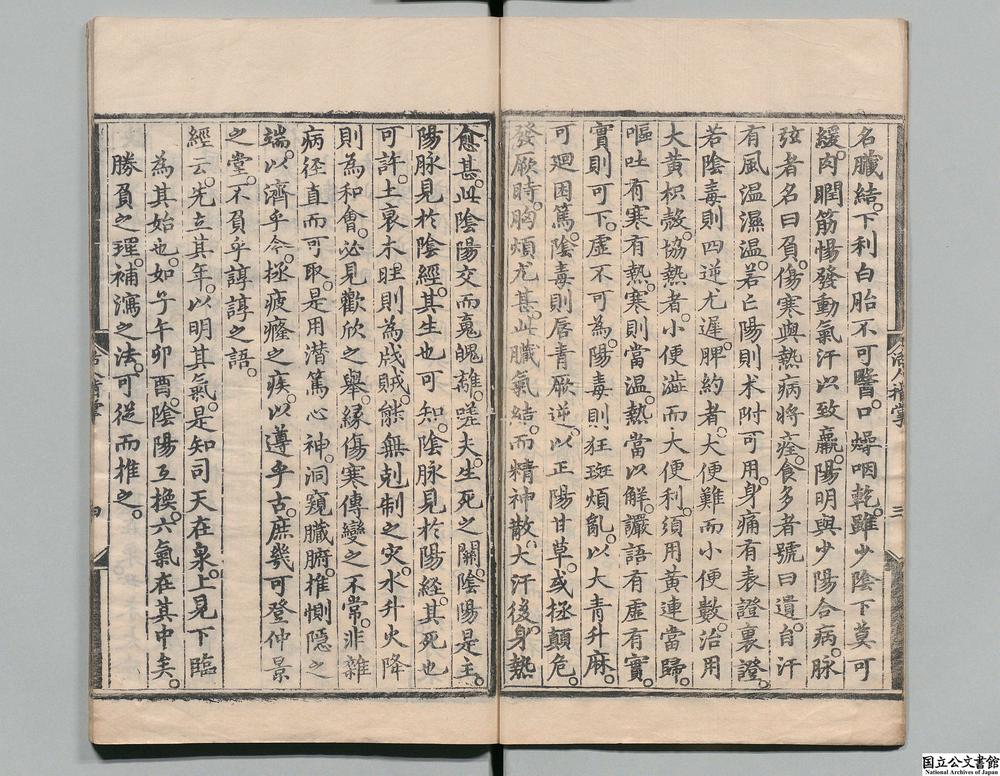 名臟結。下利白胎不可醫。口燥咽乾。雖少陰下莫可
緩。肉瞤筋惕發動氣汗以致羸。陽明與少陽合病。脉
弦者名曰負。傷寒與熱病將痊。食多者號曰遺。自汗
有風温濕温。若亡陽則术附可用。身痛有表證裏證。
若陰毒則四逆尤遲。脾約者。大便難而小便數。治用
大黄枳殼。協熱者。小便澁而大便利。須用黄連當歸。
嘔吐有寒有熱。寒則當温。熱當以解。讝語有虚有實。
實則可下。虚不可為。陽毒則狂斑煩亂。以大青升麻。
可廻困篤。陰毒則唇青厥逆。以正陽甘草。或拯顛危。
發厥時。胸煩尤甚。此臟氣結。而精神散。大汗後。身熱
愈甚。此陰陽交而䰟魄離。嗟夫。生死之關。陰陽是主。
陽脉見於陰經。其生也可知。陰脉見於陽經。其死也
可許。土衰木旺則為戕賊。能無剋制之灾。水升火降
則為和會。必見歡欣之舉。縁傷寒傳變之不常。非雜
病徑直而可取。是用潜篤心神。洞窺臟腑。推惻隠之
端。以濟乎今。拯疲癃之疾。以遵乎古。庶幾可登仲景
之堂。不負乎諄諄之語。
經云。先立其年。以明其氣。是知司天在泉。上見下臨
為其始也。如子午卯酉。陰陽互換。六氣在其中矣。
勝負之理。補瀉之法。可從而推之。
三
四
国立公文書館
National Archives of Japan